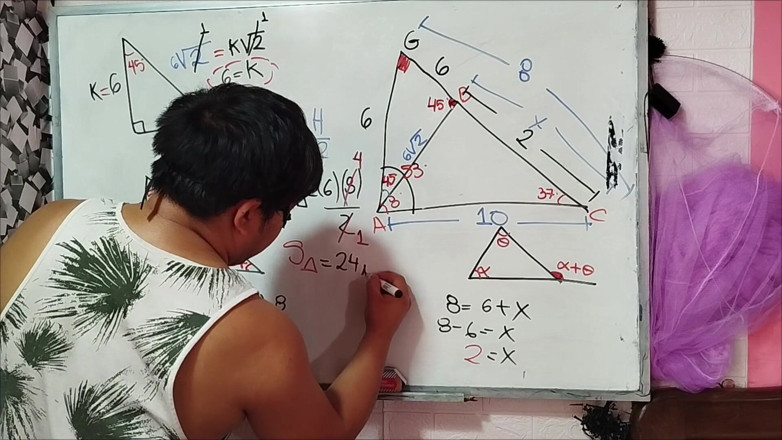 6√2 = K√2
K=6
45
6=K
H
2
(6)(8)
4
2
1
S△=24
8
G
6
8
45
B
6
6√2
x
2
45
53
8
37
A
10
C
θ
α
α+θ
8= 6+X
8-6=X
2=X